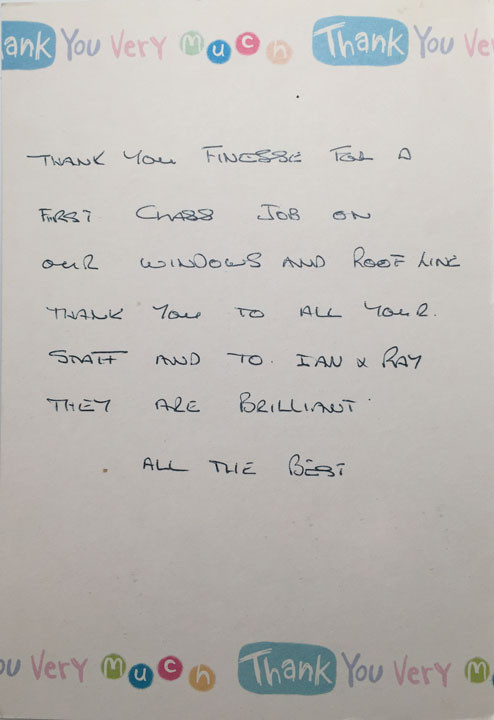 ank You Very Much Thank You Ve
THANK YOU FINESSE FOR A
FIRST CLASS JOB ON
OUR WINDOWS AND ROOF LINE
THANK YOU TO ALL YOUR.
STAFF AND TO. IAN & RAY
THEY ARE BRILLIANT.
ALL THE BEST
ou Very Much Thank You Very M